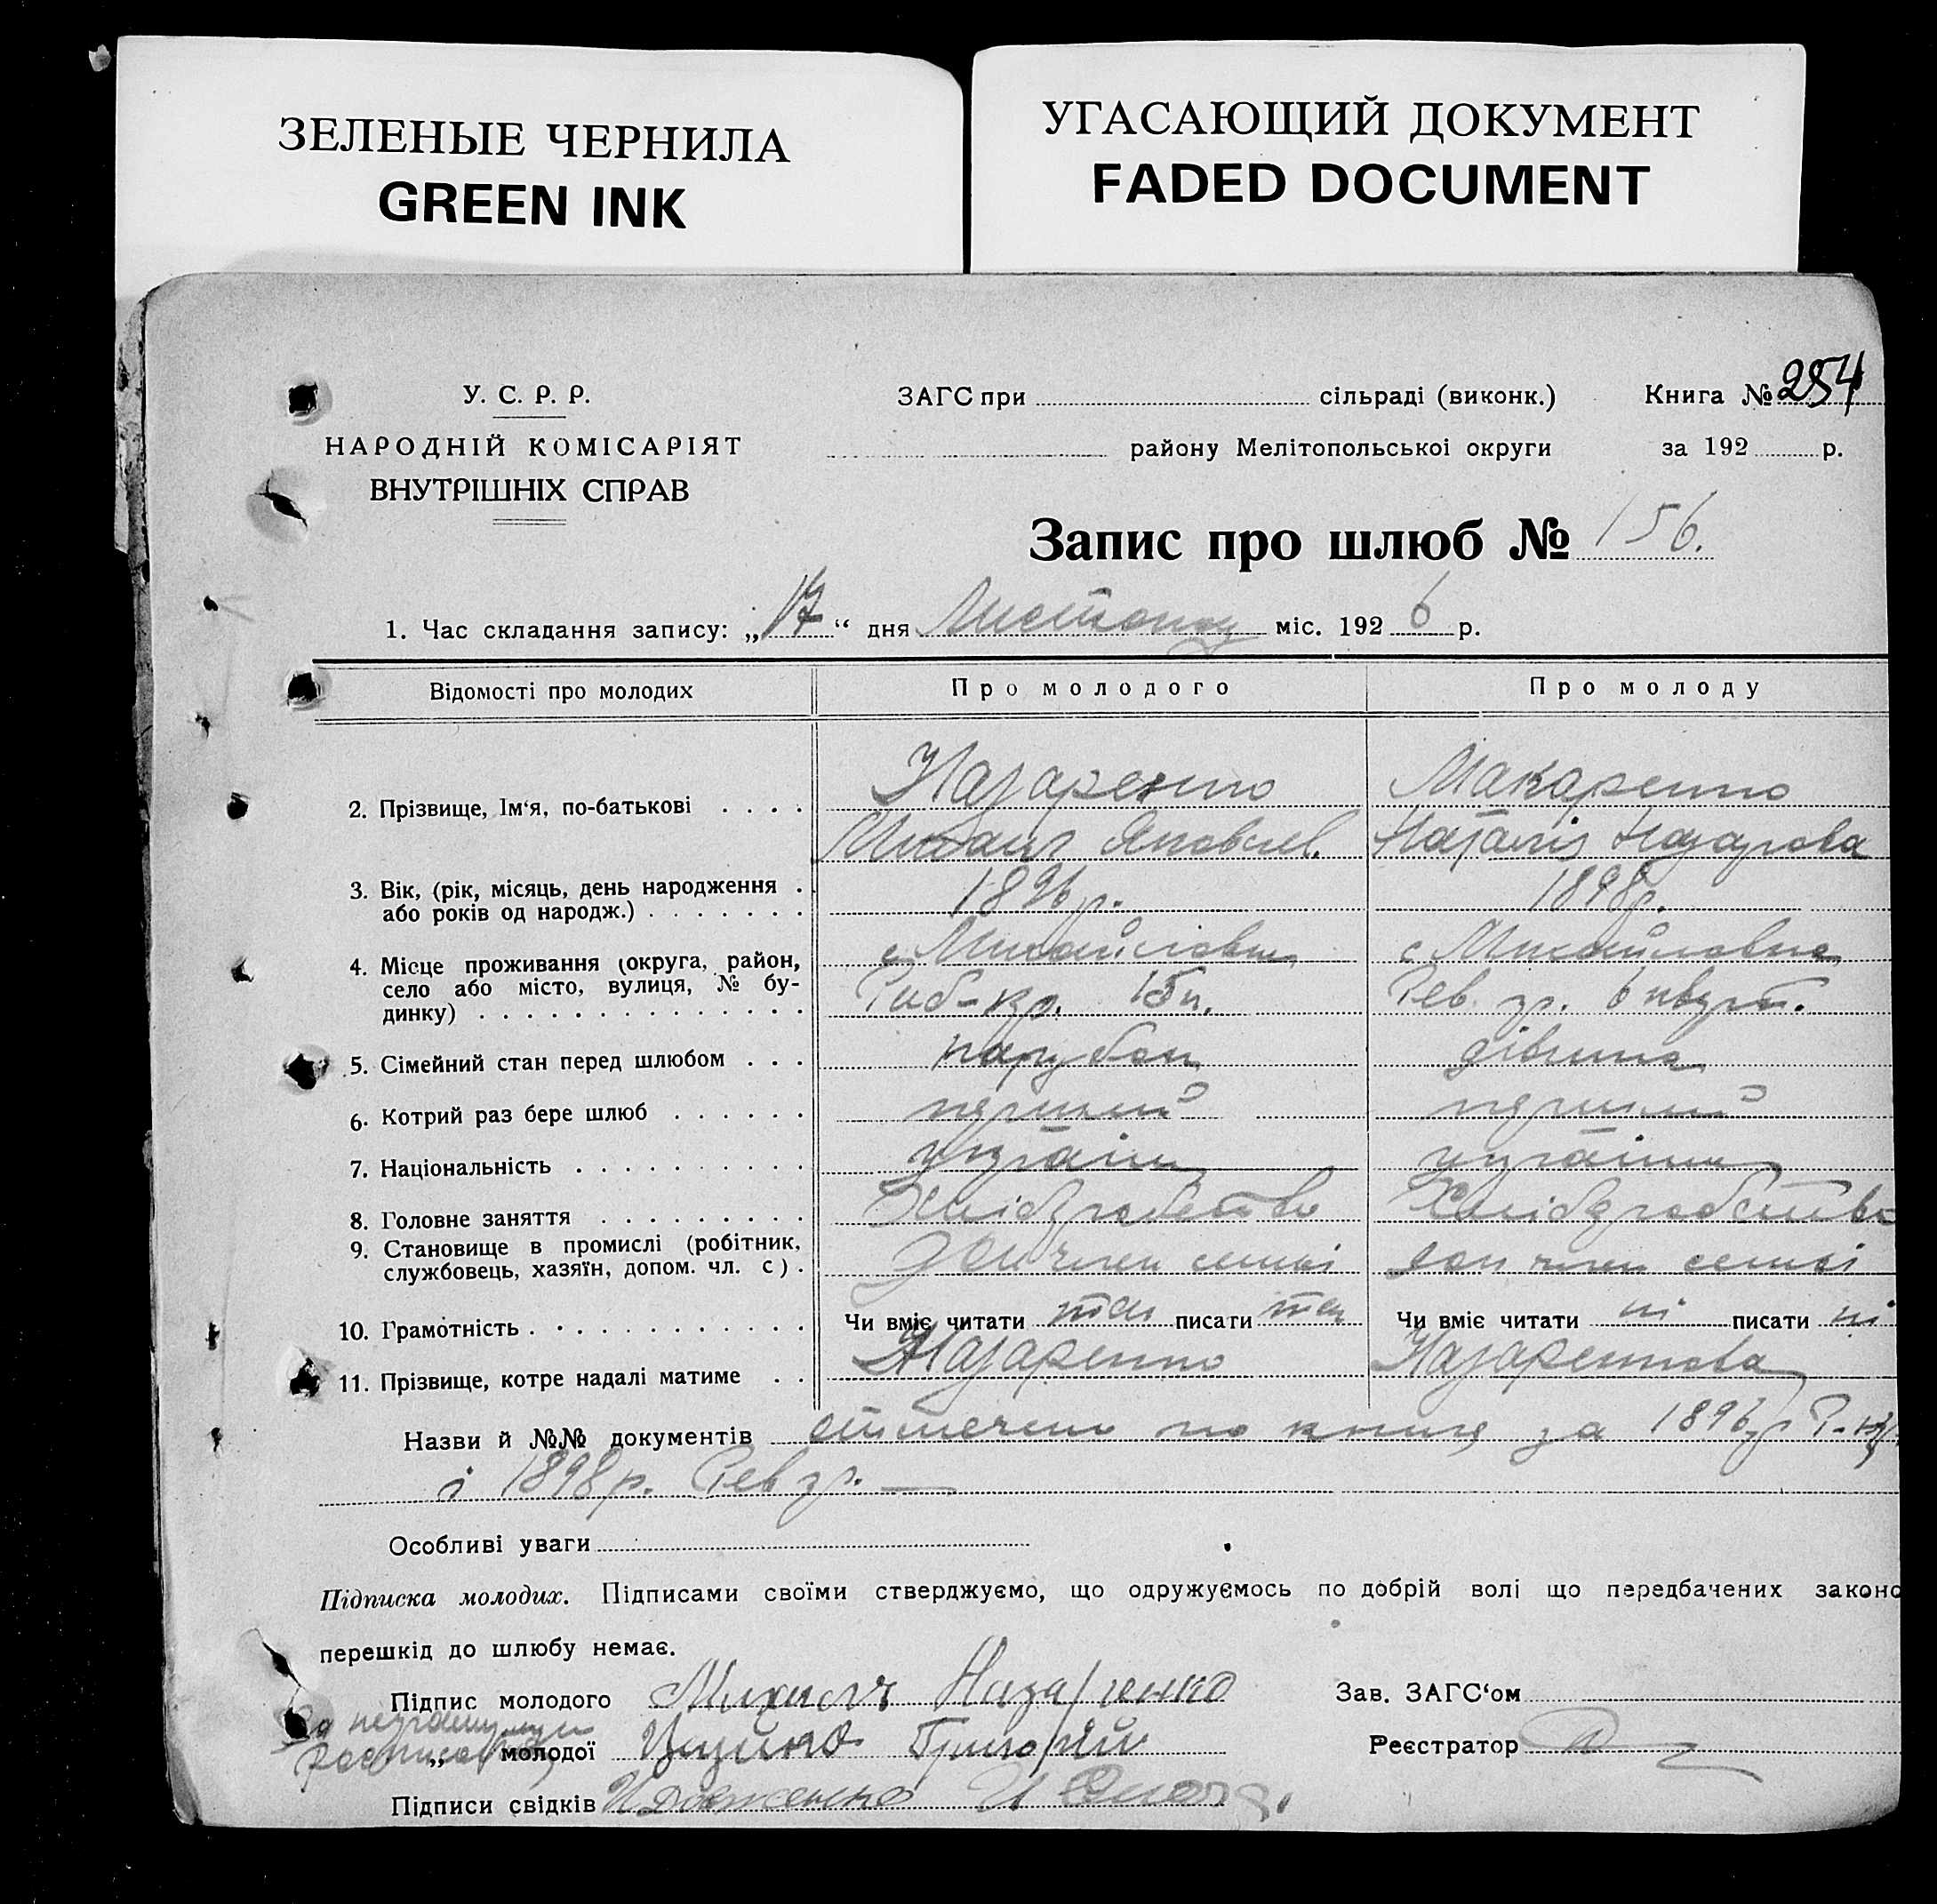 ЗЕЛЕНЫЕ ЧЕРНИЛА
GREEN INK
УГАСАЮЩИЙ ДОКУМЕНТ
FADED DOCUMENT
У. С. Р. Р.
НАРОДНІЙ КОМІСАРІЯТ
ВНУТРІШНІХ СПРАВ
ЗАГС при сільраді (виконк.)
району Мелітопольської округи
Книга № 254
за 192 р.
Запис про шлюб № 156.
1. Час складання запису: „17“ дня Листопад міс. 1926 р.
Відомості про молодих Про молодого Про молоду
2. Прізвище, Ім‘я, по-батькові Назаренко Макаренко
Михаил Яковлев. Наталія Назарова
3. Вік, (рік, місяць, день народження 1896 р. 1898 р.
або років од народж.)
4. Місце проживання (округа, район, с Михайлівка с Михайловка
село або місто, вулиця, № бу- 15 Рев. 6
динку)
5. Сімейний стан перед шлюбом парубок дівчина
6. Котрий раз бере шлюб перший перший
7. Національність
8. Головне заняття Хліборобство Хліборобство
9. Становище в промислі (робітник, член семьі член семьі
службовець, хазяїн, допом. чл. с).
10. Грамотність Чи вміє читати так писати так Чи вміє читати ні писати ні
11. Прізвище, котре надалі матиме Назаренко Назаренкова
Назви й №№ документів отмечено по книге за 1896
і 1898 р. Рев
Особливі уваги
Підписка молодих. Підписами своїми стверджуємо, що одружуємось по добрій волі що передбачених законо
перешкід до шлюбу немає.
Підпис молодого Михаилъ Назаренко Зав. ЗАГС‘ом
„ молодої Григорий Реєстратор
Підписи свідків